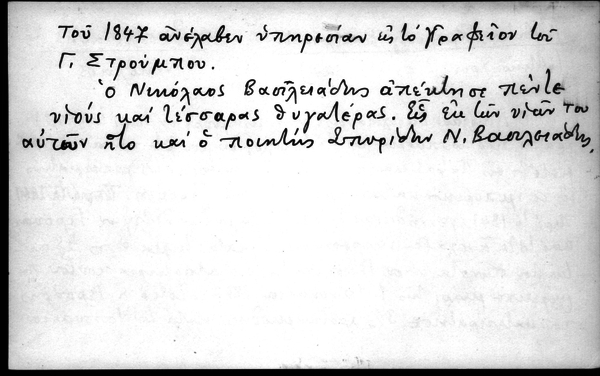 τοῦ 1847 ἀνέλαβεν ὑπηρεσίαν εἰς τό Γραφεῖον τοῦ
Γ. Στρούμπου.
Ὁ Νικόλαος Βασιλειάδης ἀπέκτησε πέντε
υἱούς καί τέσσαρας θυγατέρας. Εἷς ἐκ τῶν υἱῶν του
αὐτῶν ἦτο καί ὁ ποιητής Σπυρίδων Ν. Βασιλειάδης.